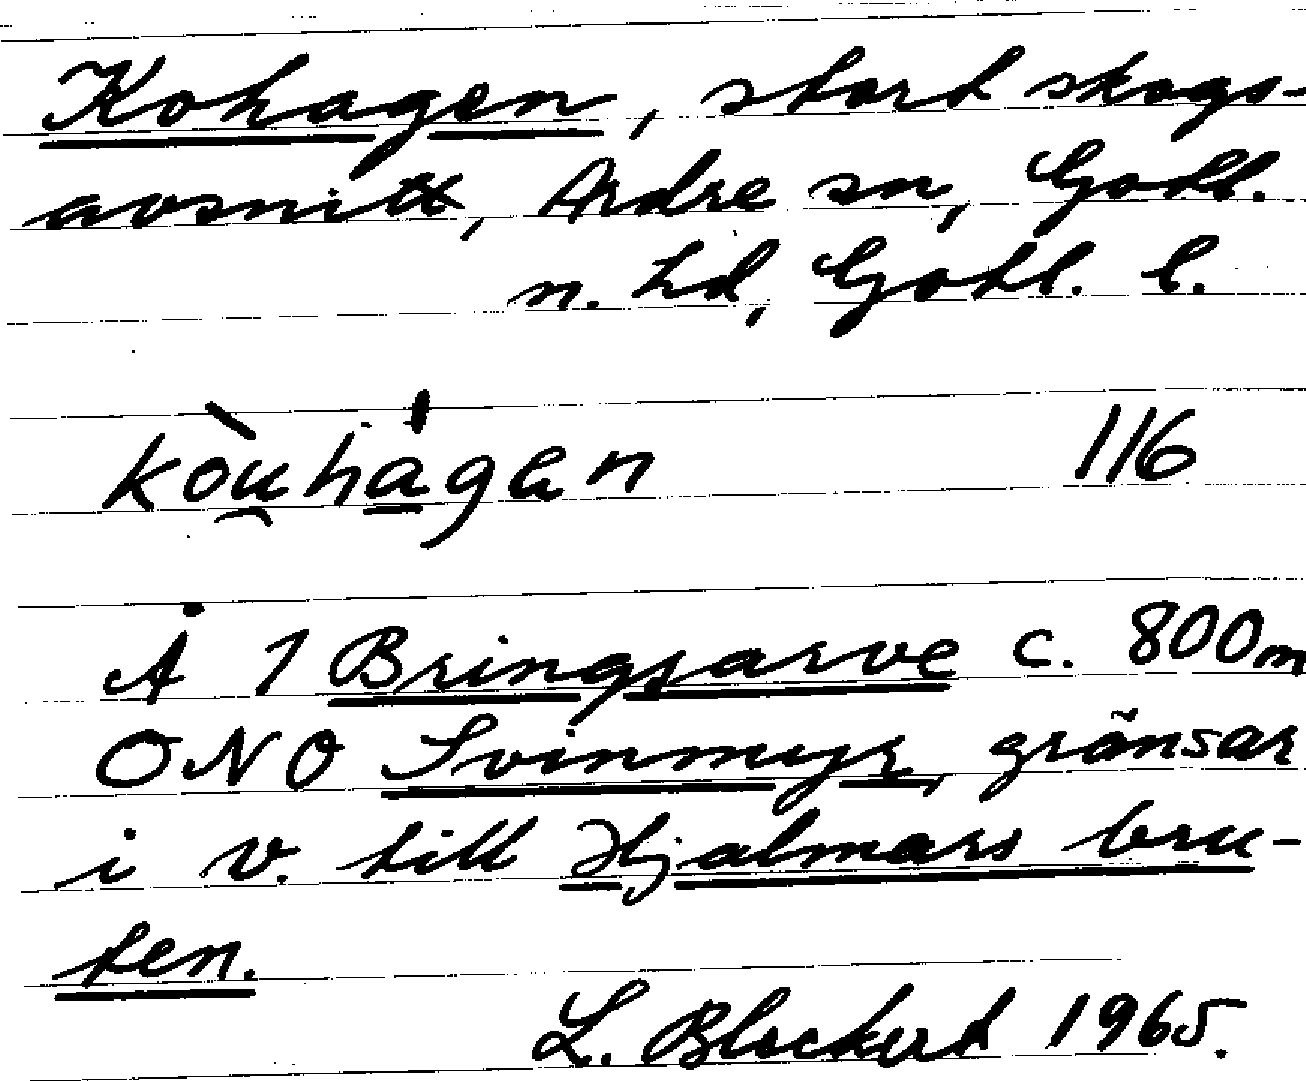 Kohagen, stort skogs-
avsnitt, Ardre sn, Gotl.
n. hd, Gotl. l.
kòu̯hạ̄gan 116
Å 1 Bringsarve c. 800m
ONO Svinmyr, gränsar
i v. till Hjalmars bru-
ten.
L. Blockert 1965.